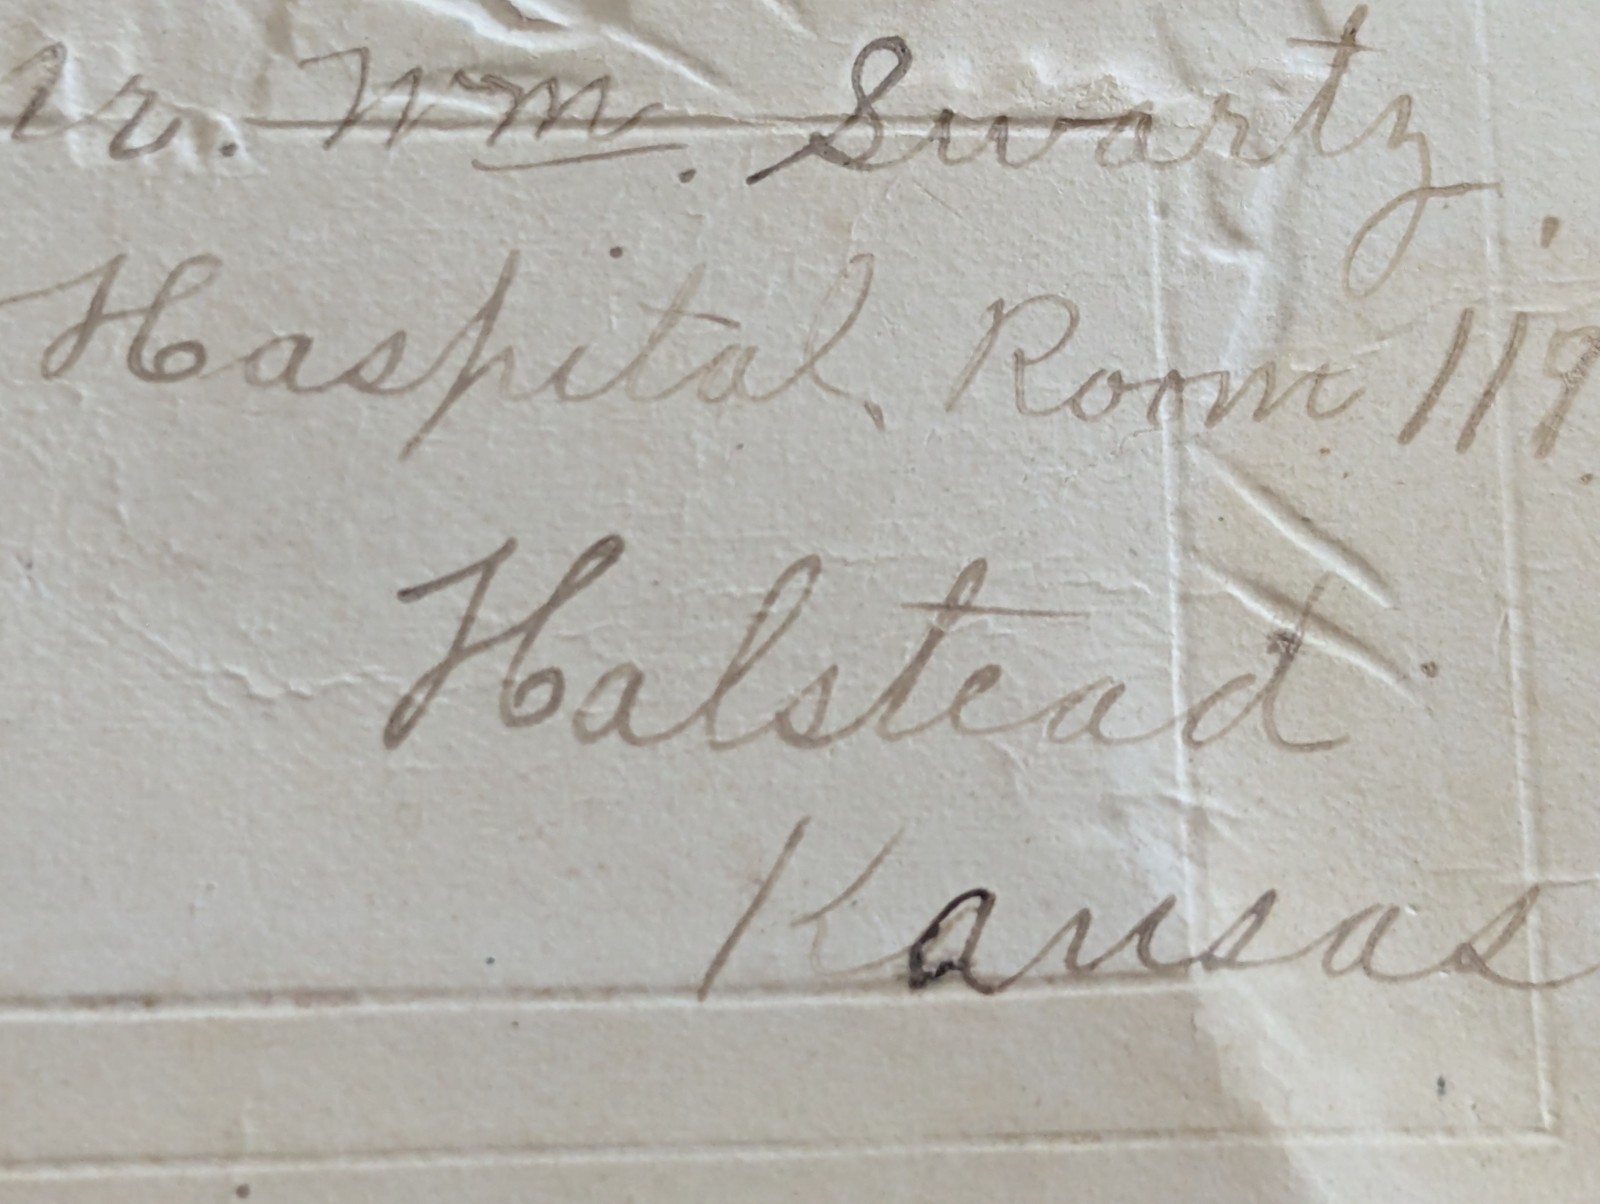 Mr. Wm. Swartz,
Haspital, Room 119
Halstead
Kansas